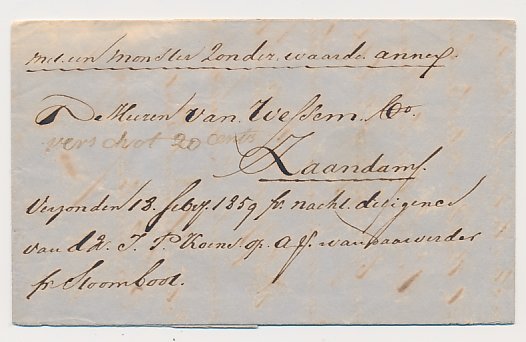 met een monster zonder waarde annex.
De Heeren van Wessem & Co.
verschot 20 cents
Zaandam.
Verzonden 18 feb. 1859 pr. nacht diligence
van d'H. J. P. Koens op A/. van daar verder
pr Stoomboot.